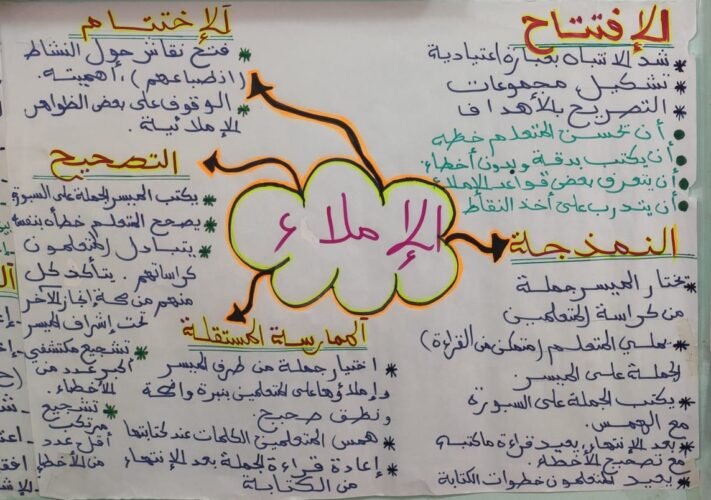 الإفتتاح
* شد الانتباه بعبارة اعتيادية
* تشكيل مجموعات
* التصريح بالأهداف
● أن يحسن المتعلم خطه
● أن يكتب بدقة وبدون أخطاء
● أن يتعرف بعض قواعد الإملاء
● أن يتدرب على أخذ النقاط
الإملاء
النمذجة
* يختار الميسر جملة
من كراسة المتعلمين
- يملي المتعلم (متمكن من القراءة)
الجملة على الميسر
* يكتب الجملة على السبورة
مع الهمس.
* بعد الإنتهاء، يعيد قراءة ماكتبه
مع تصحيح الأخطاء.
* يعيد المتعلمون خطوات الكتابة
الممارسة المستقلة
* اختيار جملة من طرف الميسر
وإملاؤها على المتعلمين بنبرة واضحة
ونطق صحيح.
* همس المتعلمين الكلمات عند كتابتها
* إعادة قراءة الجملة بعد الإنتهاء
من الكتابة
التصحيح
* يكتب الميسر الجملة على السبورة
* يصحح المتعلم خطأه بنفسه
* يتبادل المتعلمون
كراساتهم. يتأكد كل
منهم من صحة إنجاز الآخر
تحت إشراف الميسر
* تشجيع مكتشفي
أكبر عدد من
الأخطاء.
* تشجيع
مرتكب
أقل عدد
من الأخطاء
الإختتام
* فتح نقاش حول النشاط
(انطباعهم)، أهميته.
* الوقوف على بعض الظواهر
الإملائية.